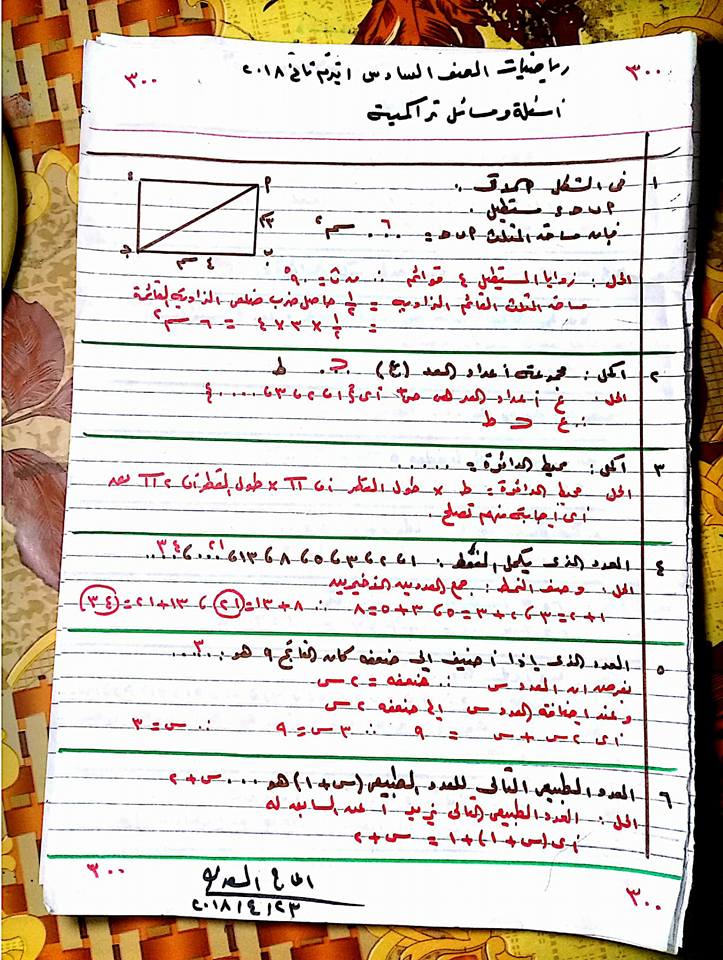 رياضيات الصف السادس ا ترم ثاني ٢٠١٨
٣٠٠
٣٠٠
أسئلة ومسائل تراكمية
١
في الشكل
ا ب حـ ء مستطيل.
فإن مساحة المثلث ا ب حـ = ..٦.. سم٢
ء
ا
٣
حـ
٤ سم
ب
الحل: زوايا المستطيل ٤ قوائم ∴ ب = ٩٠°
مساحة المثلث القائم الزاوية = ١/٢ حاصل ضرب ضلعي الزاوية القائمة
= ١/٢ × ٣ × ٤ = ٦ سم٢
٢
اكمل: مجموعة أعداد العد (ع) ..⊂.. ط
الحل: ع أعداد العد هي ص+ أي {١، ٢، ٣، ....}
∴ ع ⊂ ط
٣
اكمل: محيط الدائرة = ......
الحل محيط الدائرة = ط × طول القطر أ، π × طول القطر أ، ٢ π نق
أي إجابة منهم تصلح.
٤
العدد الذي يكمل النمط: ١، ٢، ٣، ٥، ٨، ١٣، ..٢١..، ..٣٤..
الحل: وصف النمط: جمع العددين الأخيرين
١+٢=٣، ٢+٣=٥، ٣+٥=٨ ∴ ٨+١٣=٢١، ١٣+٢١=٣٤
٥
العدد الذي إذا أضيف إلى ضعفه كان الناتج ٩ هو ..٣...
بفرض ان العدد س ∴ ضعفه = ٢ س
وعند إضافة العدد س إلى ضعفه ٢ س
أي ٢ س + س = ٩ ∴ ٣ س = ٩ ∴ س = ٣
٦
العدد الطبيعي التالي للعدد الطبيعي (س+١) هو ... س+٢
الحل: العدد الطبيعي التالي يزيد ١ عن السابق له
أي (س+١)+١ = س+٢
٣٠٠
٢٠١٨/٤/٢٣
٣٠٠